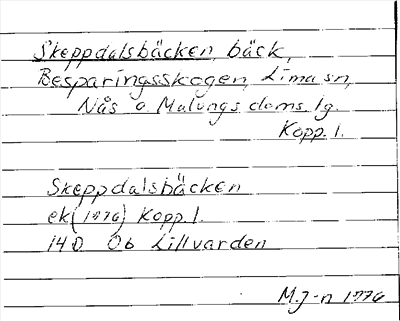 Skeppdalsbäcken, bäck,
Besparingsskogen, Lima sn,
Nås o. Malungs doms. lg.
Kopp. l.
Skeppdalsbäcken
ek (1976) Kopp. l.
14 D Öb Lillvarden
M.J-n 1976